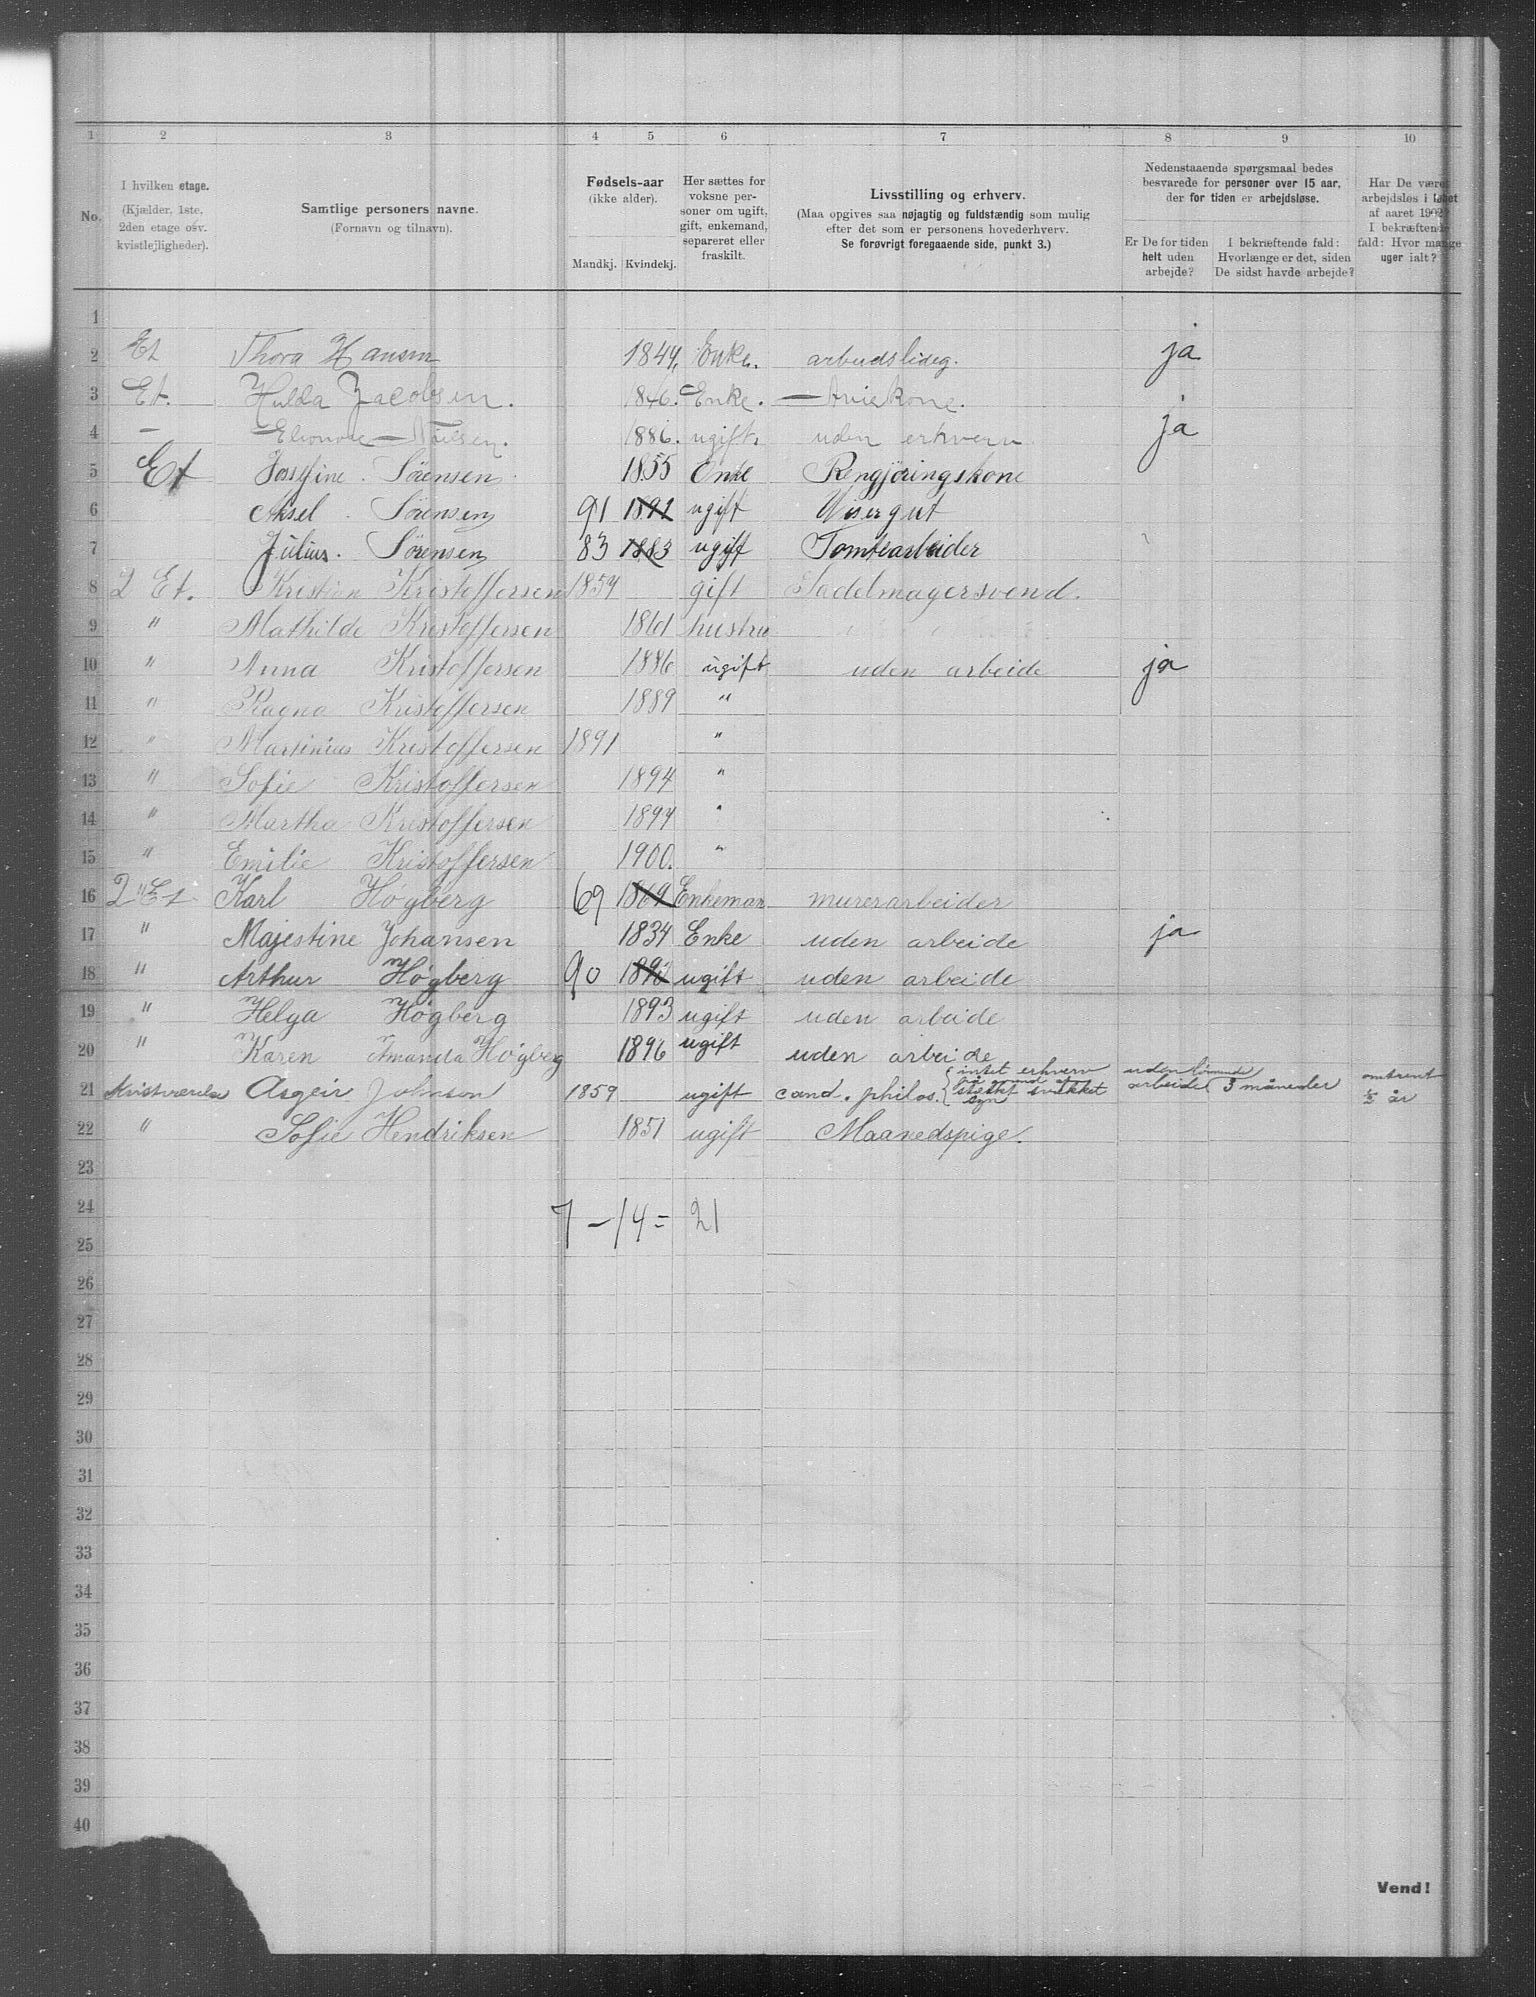 1 2 3 4 5 6 7 8 9 10
No.
I hvilken etage.
(Kjælder, 1ste,
2den etage osv.
kvistlejligheder).
Samtlige personers navne.
(Fornavn og tilnavn).
Fødsels-aar
(ikke alder).
Mandkj. Kvindekj.
Her sættes for
voksne per-
soner om ugift,
gift, enkemand,
separeret eller
fraskilt.
Livsstilling og erhverv.
(Maa opgives saa nøjagtig og fuldstændig som mulig
efter det som er personens hovederhverv.
Se forøvrigt foregaaende side, punkt 3.)
Nedenstaaende spørgsmaal bedes
besvarede for personer over 15 aar,
der for tiden er arbejdsløse.
Er De for tiden
helt uden
arbejde?
I bekræftende fald:
Hvorlænge er det, siden
De sidst havde arbejde?
Har De været
arbejdsløs i løbet
af aaret 1902?
I bekræftende
fald: Hvor mange
uger ialt?
1
2 Et Thora Hansen 1844. Enke. ja
3 Et. Hulda Jacobsen. 1846. Enke.
4 — Eleonore Nilsen. 1886. ugift. uden erhverv ja
5 Et Josefine Sørensen 1855 Enke Rengjøringskone
6 Aksel Sørensen 91 1891 ugift Visergut
7 Julius. Sørensen 83 1883 ugift Tomtearbeider
8 2 Et. Kristian Kristoffersen 1859 gift Sadelmagersvend.
9 " Mathilde Kristoffersen 1861 hustru
10 " Anna Kristoffersen 1886 ugift uden arbeide ja
11 " Ragna Kristoffersen 1889 "
12 " Martinius Kristoffersen 1891 "
13 " Sofie Kristoffersen 1894 "
14 " Martha Kristoffersen 1897 "
15 " Emilie Kristoffersen 1900. "
16 2 Et Karl Høgberg 69 1869 Enkeman murerarbeider
17 " Majestine Johansen 1834 Enke uden arbeide ja
18 " Arthur Høgberg 90 1890 ugift uden arbeide
19 " Helga Høgberg 1893 ugift uden arbeide
20 " Karen Amanda Høgberg 1896 ugift uden arbeide
21 Kvistværelse Asgeir Johnson 1859 ugift cand. philos. { intet erhverv på grund af stærkt svækket syn uden lønnende arbeide 3 måneder omtrent ½ år
22 " Sofie Hendriksen 1851 ugift Maanedspige.
23
24 7 – 14 = 21
25
26
27
28
29
30
31
32
33
34
35
36
37
38
39
40
Vend!